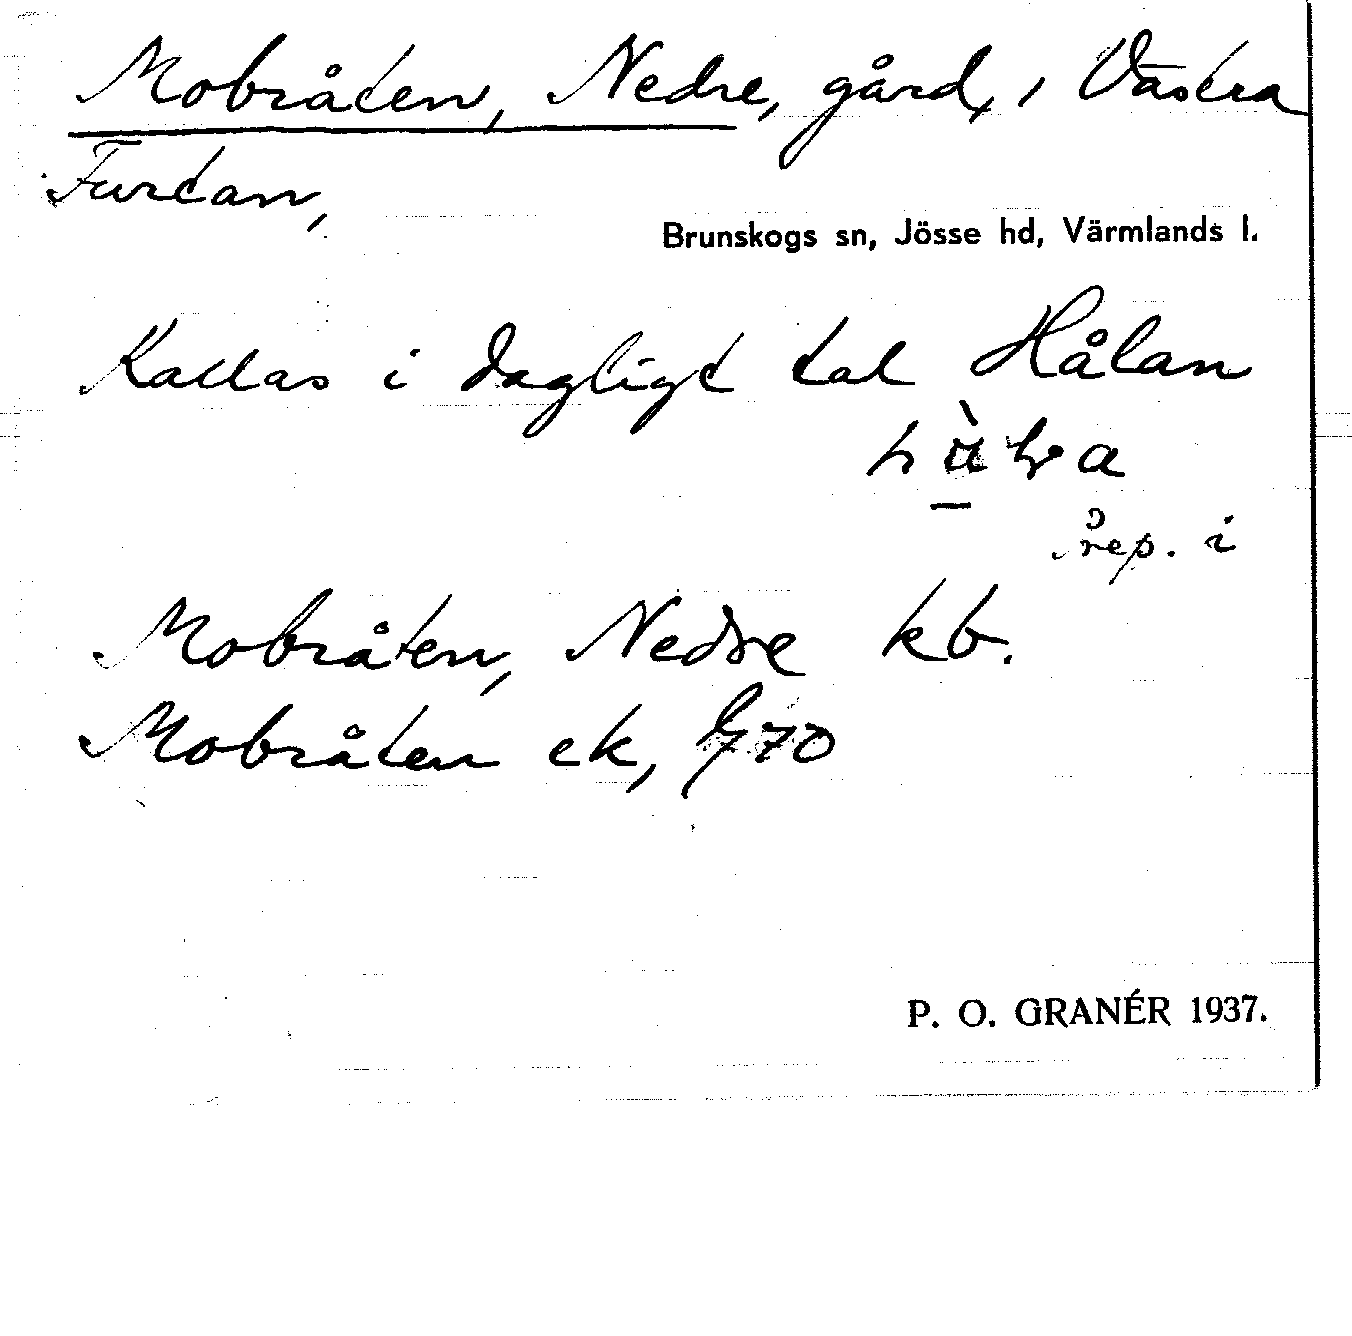 Mobråten, Nedre, gård, i Västra
Furtan,
Brunskogs sn, Jösse hd, Värmlands l.
Kallas i dagligt tal Hålan
prep. i
Mobråten, Nedre kb.
Mobråten ek, G70
P. O. GRANÉR 1937.